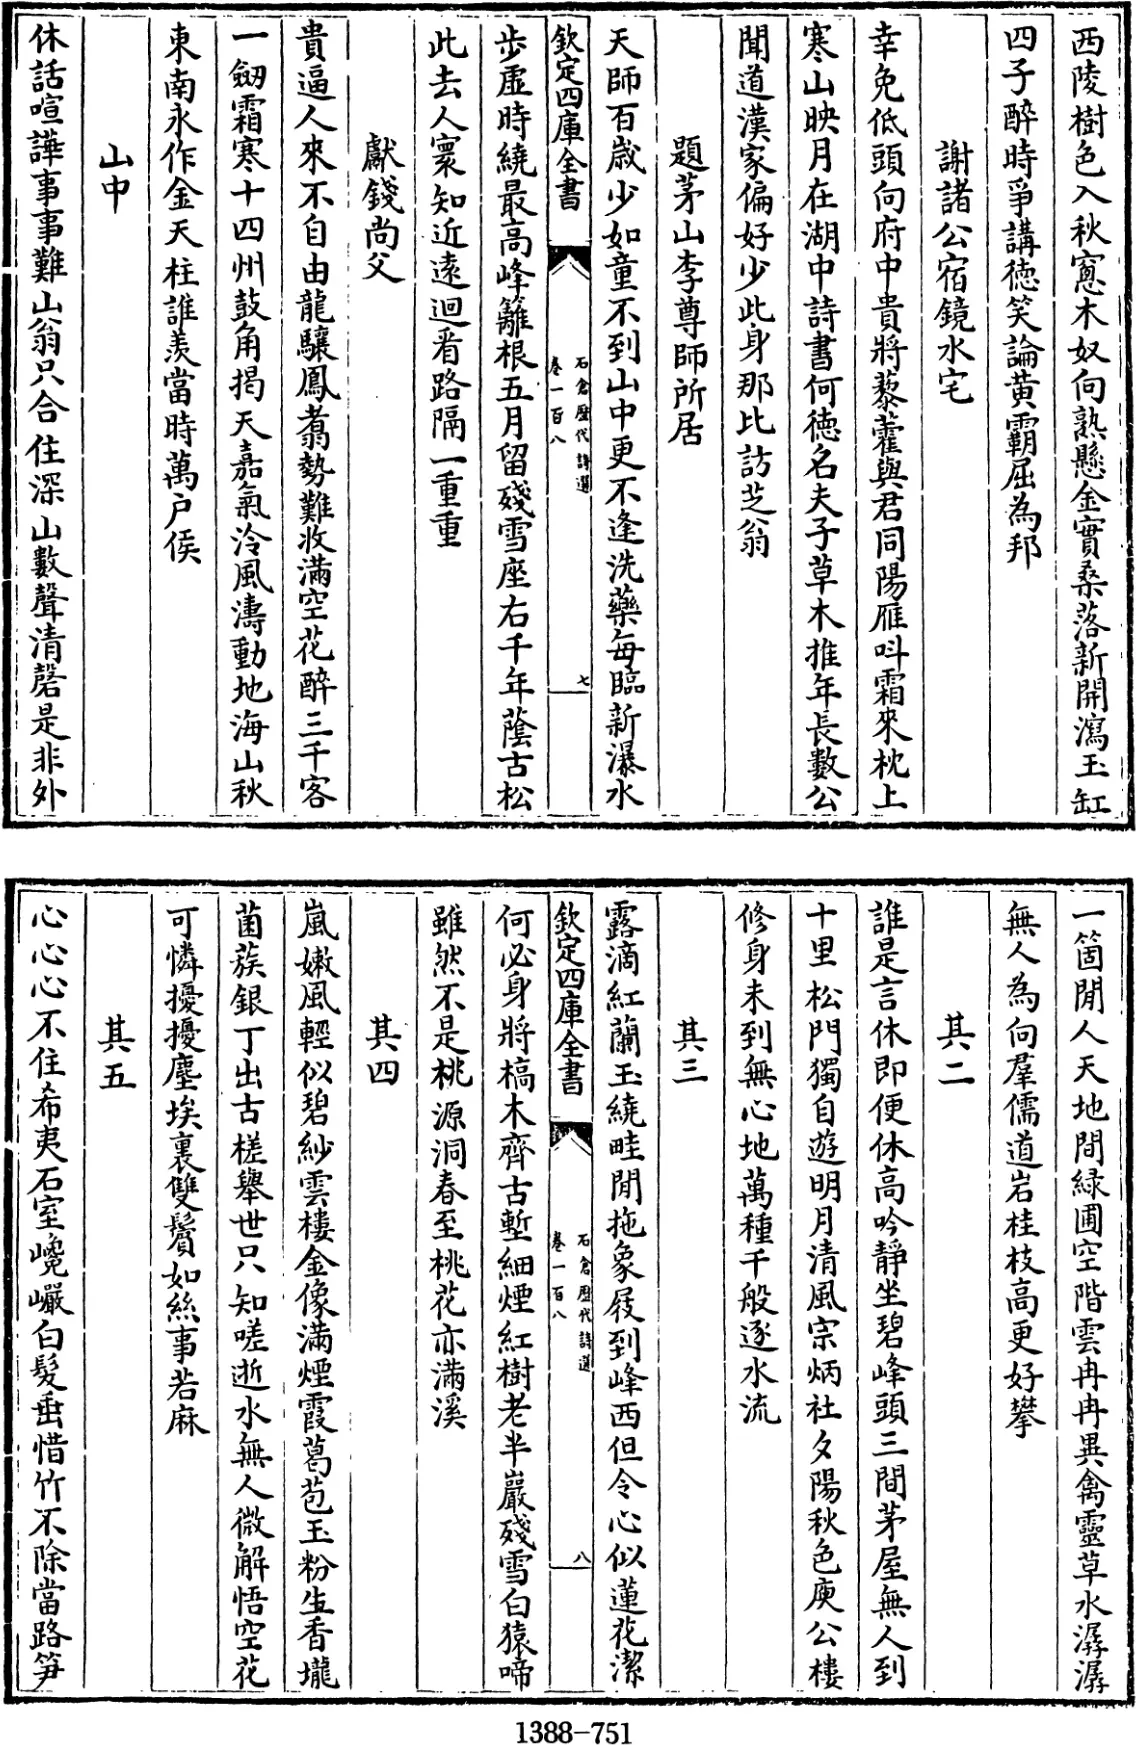 西陵樹色入秋窻木奴向熟懸金實桑落新開瀉玉缸
四子醉時爭講徳笑論黄霸屈為邦
謝諸公宿鏡水宅
幸免低頭向府中貴將藜藿與君同陽雁呌霜來枕上
寒山映月在湖中詩書何徳名夫子草木推年長數公
聞道漢家偏好少此身那比訪芝翁
題茅山李尊師所居
天師百歳少如童不到山中更不逢洗藥每臨新瀑水
欽定四庫全書
石倉歴代詩選
卷一百八
七
步虛時繞最高峰籬根五月留殘雪座右千年蔭古松
此去人寰知近逺迴㸔路隔一重重
獻錢尚父
貴逼人來不自由龍驤鳳翥勢難收滿空花醉三千客
一劒霜寒十四州鼓角揭天嘉氣冷風濤動地海山秋
東南永作金天柱誰羨當時萬户侯
山中
休話喧譁事事難山翁只合住深山數聲清磬是非外
一箇閒人天地間緑圃空階雲冉冉異禽靈草水潺潺
無人為向羣儒道岩桂枝高更好攀
其二
誰是言休即便休高吟靜坐碧峰頭三間茅屋無人到
十里松門獨自遊明月清風宗炳社夕陽秋色庾公樓
修身未到無心地萬種千般逐水流
其三
露滴紅蘭玉繞畦閒拖象屐到峰西但令心似蓮花潔
欽定四庫全書
石倉歴代詩選
卷一百八
八
何必身將槁木齊古塹細煙紅樹老半巖殘雪白猿啼
雖然不是桃源洞春至桃花亦滿溪
其四
嵐嫩風輕似碧紗雲樓金像滿煙霞葛苞玉粉生香壠
菌蔟銀丁出古槎舉世只知嗟逝水無人微解悟空花
可憐擾擾塵埃裏雙鬢如絲事若麻
其五
心心心不住希夷石室巉巖白髮垂惜竹不除當路笋
1388-751